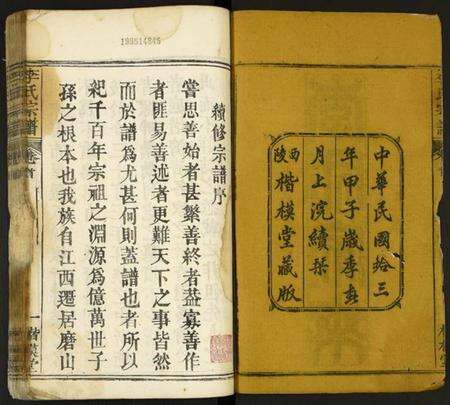 中華民國拾三
年甲子歲季春
月上浣續栞
陝西楷模堂藏版
199514845
續修宗譜序
嘗思善始者甚繁善終者葢寡善作
者匪易善述者更難天下之事皆然
而於譜爲尤甚何則蓋譜也者所以
紀千百年宗祖之淵源爲億萬世子
孫之根本也我族自江西遷居磨山
李氏宗譜
卷首
一
楷模堂